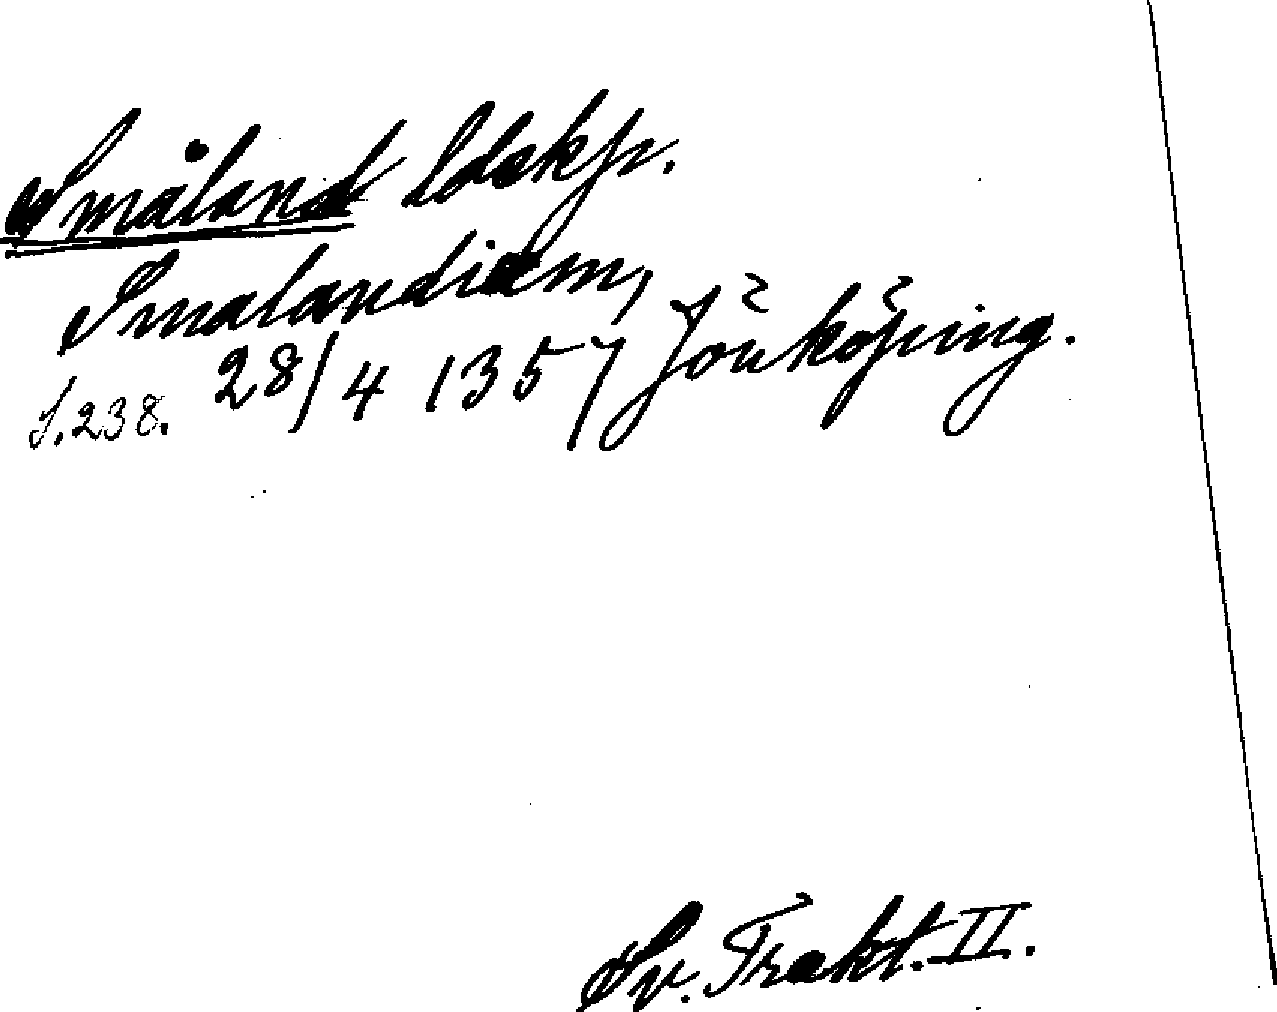 Småland ldskp.
Smalandiam,
S.238. 28/4 1357 Jönköping.
Sv. Trakt. II.